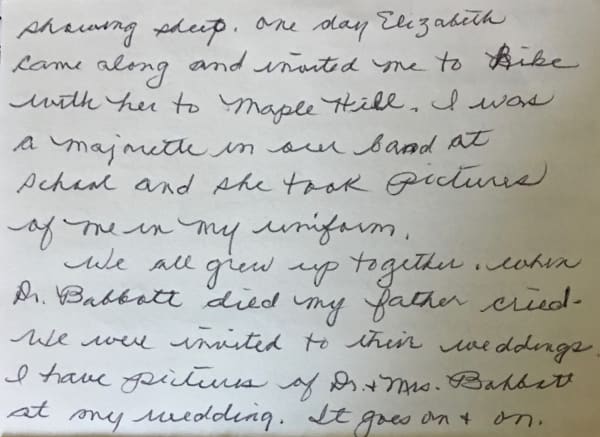 showing sheep. One day Elizabeth
came along and invited me to hike
with her to Maple Hill. I was
a majorette in our band at
school and she took pictures
of me in my uniform.
We all grew up together. When
Dr. Babbott died my father cried-
We were invited to their weddings.
I have pictures of Dr. + Mrs. Babbott
at my wedding. It goes on + on.